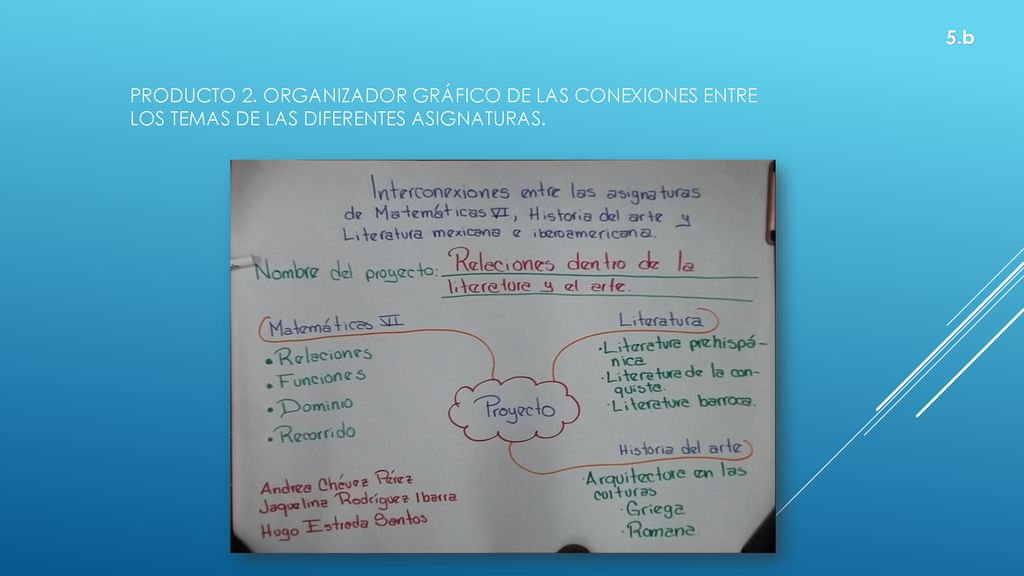 5.b
PRODUCTO 2. ORGANIZADOR GRÁFICO DE LAS CONEXIONES ENTRE
LOS TEMAS DE LAS DIFERENTES ASIGNATURAS.
Interconexiones entre las asignaturas
de Matemáticas VI, Historia del arte y
Literatura mexicana e iberoamericana.
Nombre del proyecto: Relaciones dentro de la
literatura y el arte.
Matemáticas VI
• Relaciones
• Funciones
• Dominio
• Recorrido
Proyecto
Literatura
• Literatura prehispá-
nica
• Literatura de la con-
quista.
• Literatura barroca.
Historia del arte
• Arquitectura en las
culturas
• Griega
• Romana
Andrea Chévez Pérez
Jaquelina Rodríguez Ibarra
Hugo Estrada Santos